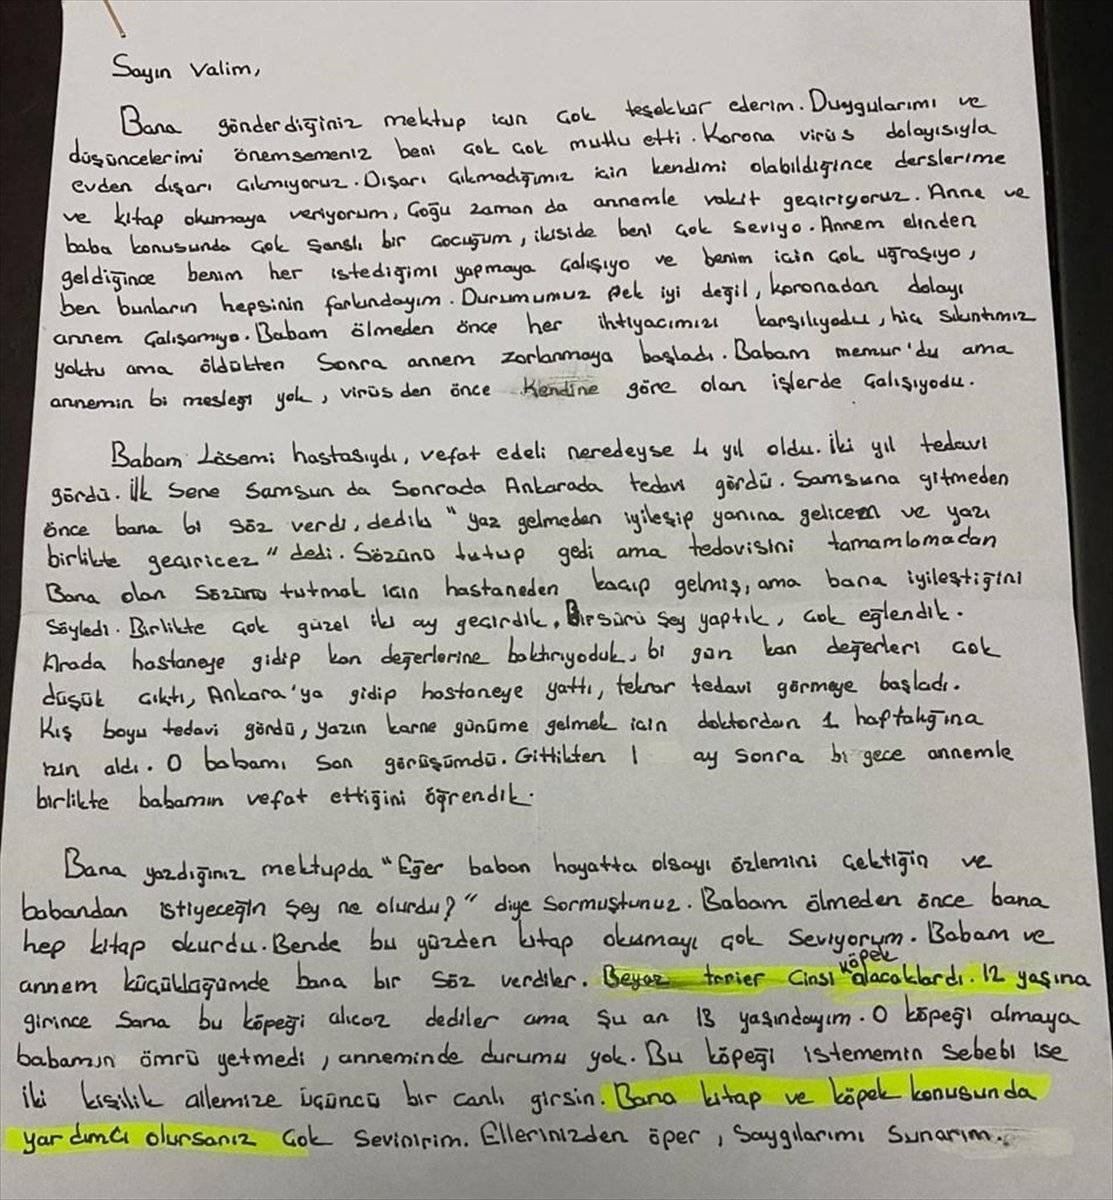 Sayın Valim,
Bana gönderdiğiniz mektup için çok teşekkür ederim. Duygularımı ve
düşüncelerimi önemsemeniz beni çok çok mutlu etti. Korona virüs dolayısıyla
evden dışarı çıkmıyoruz. Dışarı çıkmadığımız için kendimi olabildiğince derslerime
ve kitap okumaya veriyorum, Çoğu zaman da annemle vakit geçiriyoruz. Anne ve
baba konusunda çok şanslı bir çocuğum, ikiside beni çok seviyo. Annem elinden
geldiğince benim her istediğimi yapmaya çalışıyo ve benim için çok uğraşıyo,
ben bunların hepsinin farkındayım. Durumumuz pek iyi değil, koronadan dolayı
annem çalışamıyo. Babam ölmeden önce her ihtiyacımızı karşılıyodu, hiç sıkıntımız
yoktu ama öldükten sonra annem zorlanmaya başladı. Babam memur'du ama
annemin bi mesleği yok, virüs den önce kendine göre olan işlerde çalışıyodu.
Babam Lösemi hastasıydı, vefat edeli neredeyse 4 yıl oldu. İki yıl tedavi
gördü. İlk sene Samsun da sonrada Ankarada tedavi gördü. Samsuna gitmeden
önce bana bi söz verdi, dediki "yaz gelmeden iyileşip yanına gelicem ve yazı
birlikte geçiricez" dedi. Sözünü tutup gedi ama tedavisini tamamlamadan
Bana olan sözünü tutmak için hastaneden kaçıp gelmiş, ama bana iyileştiğini
söyledi. Birlikte çok güzel iki ay geçirdik. Birsürü şey yaptık, çok eğlendik.
Arada hastaneye gidip kan değerlerine baktırıyoduk, bi gün kan değerleri çok
düşük çıktı, Ankara'ya gidip hastaneye yattı, tekrar tedavi görmeye başladı.
Kış boyu tedavi gördü, yazın karne günüme gelmek için doktordan 1 haftalığına
izin aldı. O babamı son görüşümdü. Gittikten 1 ay sonra bi gece annemle
birlikte babamın vefat ettiğini öğrendik.
Bana yazdığınız mektupda "Eğer baban hayatta olsayı özlemini çektiğin ve
babandan istiyeceğin şey ne olurdu?" diye sormuştunuz. Babam ölmeden önce bana
hep kitap okurdu. Bende bu yüzden kitap okumayı çok seviyorum. Babam ve
annem küçüklüğümde bana bir söz verdiler. Beyaz terrier cinsi köpek alacaklardı. 12 yaşına
girince sana bu köpeği alıcaz dediler ama şu an 13 yaşındayım. O köpeği almaya
babamın ömrü yetmedi, anneminde durumu yok. Bu köpeği istememin sebebi ise
iki kişilik ailemize üçüncü bir canlı girsin. Bana kitap ve köpek konusunda
yardımcı olursanız çok sevinirim. Ellerinizden öper, saygılarımı sunarım.